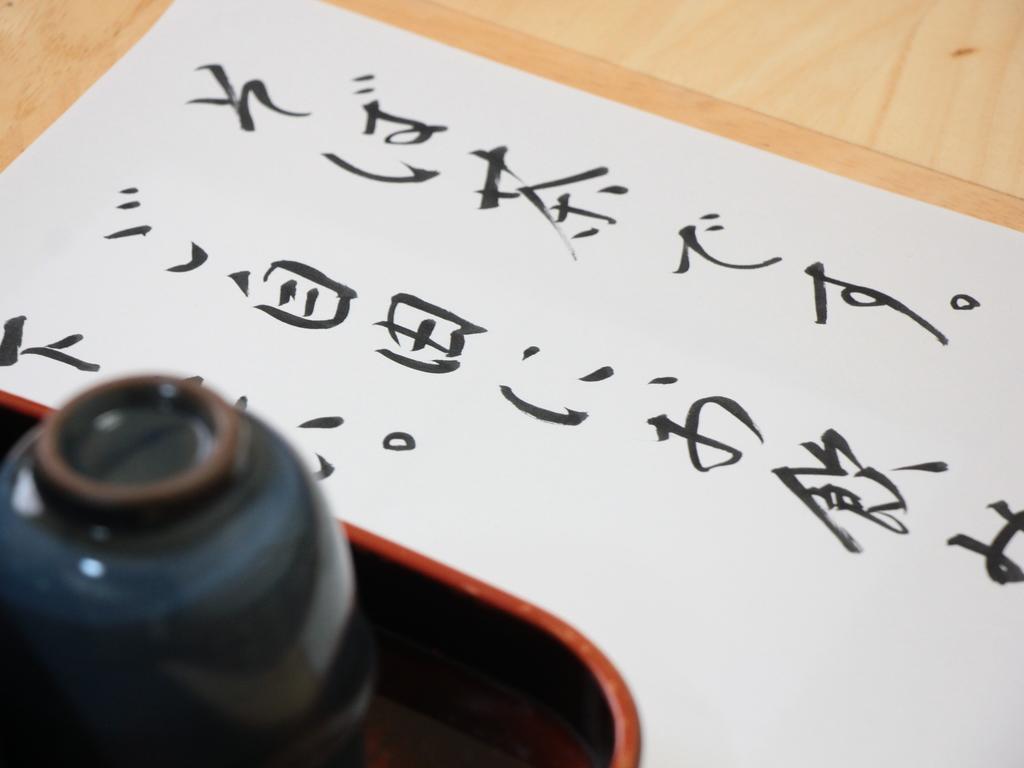 そば茶です。
ご自由にお飲み
下さい。